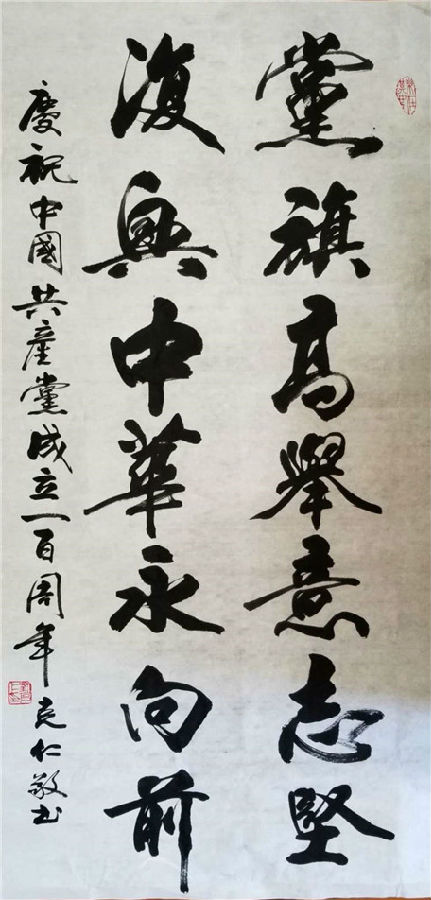 黨旗高舉意志堅
復興中華永向前
慶祝中國共產黨成立一百周年克仁敬书